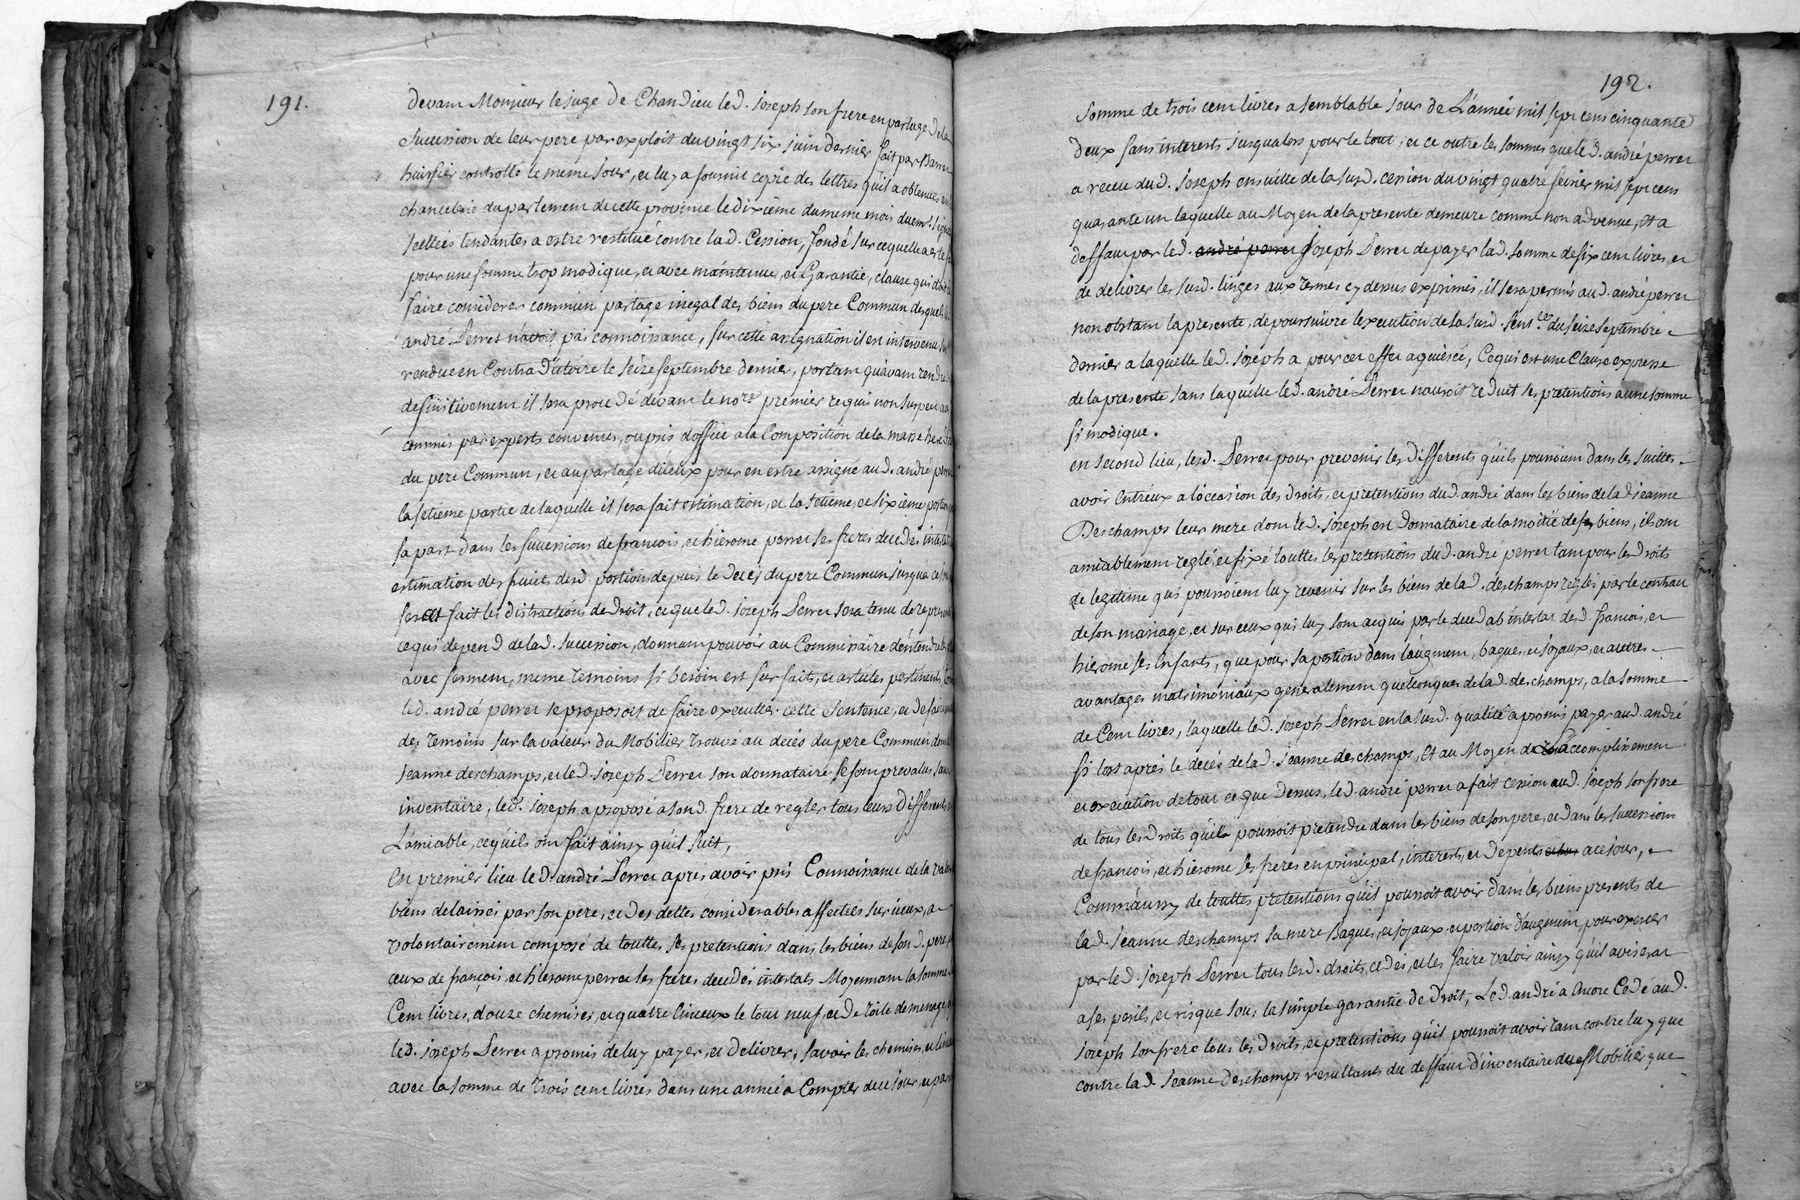 191.
devant Monsieur le juge de Chandieu led. joseph son frere en partage de la
sucession de leur pere par exploit du vingt six juin dernier fait par
huissier controllé le meme jour, et luy a fournit copie des lettres qu'il a obtenues en
chancelerie du parlement de cette province le dixième du meme mois duem.t
scellées tendantes a estre restitué contre lad. Cession, fondé sur ce quelle a
pour une somme trop modique, et avec maintenue, et Garantie, clause qui doit
faire considerer comme un partage inegal des biens du pere Commun desquels
andré perret n'avoit pas connoissance, sur cette assignation il en intervenue
rendue en Contradictoire le seize septembre dernier, portant qu'avant rendre
deffinitivement il sera procedé devant le no.re premier requis non suspect
commis par experts convenus, ou pris d'office a la Composition de la masse
du pere Commun, et au partage d'iceux pour en estre assigné aud. andré
la setième partie de laquelle il sera fait estimation, et la setième, et sixième portion
sa part dans les sucessions de francois, et hierome perret ses freres decedés
estimation des fruits desd. portions depuis le decés du pere Commun jusqua ce
sera fait les distractions de droit, et que led. joseph perret sera tenu de
ce qui depend de lad. sucession, donnant pouvoir au Commissaire d'entendre
avec serment, meme temoins si besoin est sur faits, et articles pertinents,
led. andré perret se proposoit de faire executter cette Sentence, et de faire
des temoins sur la valeur du Mobilier trouvé au decés du pere Commun dont
jeanne deschamps, et led. joseph perret son donnataire se sont prevalus sans
inventaire, led. joseph a proposé a sond. frere de regler tous leurs differents
L'amiable, ce qu'ils ont fait ainsy qu'il suit,
En premier lieu led. andré perret apres avoir pris Connoissance de la
biens delaissés par son pere, et des dettes considerables affectées sur iceux, a
volontairement composé de touttes ses pretentions dans les biens de sond. pere
ceux de françois, et hierome perret ses freres decedés intestats Moyennant la somme
Cent livres, douze chemises, et quatre linceux le tout neuf, et de toile de menage,
led. joseph perret a promis de luy payer, et delivrer, savoir les chemises, et
avec la somme de trois cent livres dans une année à Compter de ce jour, et
192.
somme de trois cent livres a semblable jour de L'année mil sept cent cinquante
deux sans interests jusqu'alors pour le tout, et ce outre les sommes que led. andré perret
a receu dud. joseph ensuitte de la susd. cession du vingt quatre fevrier mil sept cens
quarante un laquelle au Moyen de la presente demeure comme non advenue, et a
deffaut par led. andré perret joseph perret de payer lad. somme de six cent livres, et
de delivrer les susd. linges aux termes cy dessus exprimés, il sera permis aud. andré perret
non obstant la presente, de poursuivre l'execution de la susd. Sent.ce du seize septembre
dernier a laquelle led. joseph a pour cet effet aquiescé, Ce qui est une Clause expresse
de la presente sans laquelle led. andré perret n'auroit reduit ses pretentions a une somme
si modique.
en second lieu, lesd. perret pour prevenir les differents qu'ils pourroient dans les suittes
avoir entreux a l'occasion des droits, et pretentions dud. andré dans les biens de lad. jeanne
Deschamps leur mere dont led. joseph est donnataire de la moitié de ses biens, ils ont
amiablement reglé, et fixé touttes les pretentions dud. andré perret tant pour les droits
de legitime qui pourroient luy revenir sur les biens de lad. deschamps reglés par le contrat
de son mariage, et sur ceux qui luy sont acquis par le deced ab intestat desd. francois, et
hierome ses enfants, que pour sa portion dans l'augment, bagues, et joyaux, et autres
avantages matrimoniaux generalement quelconques de lad. deschamps, a la somme
de Cent livres, laquelle led. joseph perret en la susd. qualité a promis payer aud. andré
si tost après le decés de lad. jeanne deschamps, et au Moyen de l'accomplissement
et execution de tout ce que dessus, led. andré perret a fait cession aud. joseph son frere
de tous les droits qu'il a pourroit pretendre dans les biens de son pere, et dans les sucessions
de francois, et hierome, ses freres en principal, interests, et depents a ce jour,
Comm'aussy de touttes pretentions qu'il pourroit avoir dans les biens presents de
lad. jeanne deschamps sa mere Bagues, et joyaux, et portion d'augment, pour exercer
par led. joseph perret tous lesd. droits cedés, et les faire valoir ainsy qu'il avisera
a ses perils, et risque sous la simple garantie de droit, Led. andré a encore Cedé aud.
joseph son frere tous les droits, et pretentions qu'il pourroit avoir tant contre luy que
contre lad. jeanne deschamps resultants du deffaut d'inventaire des Mobiliers que